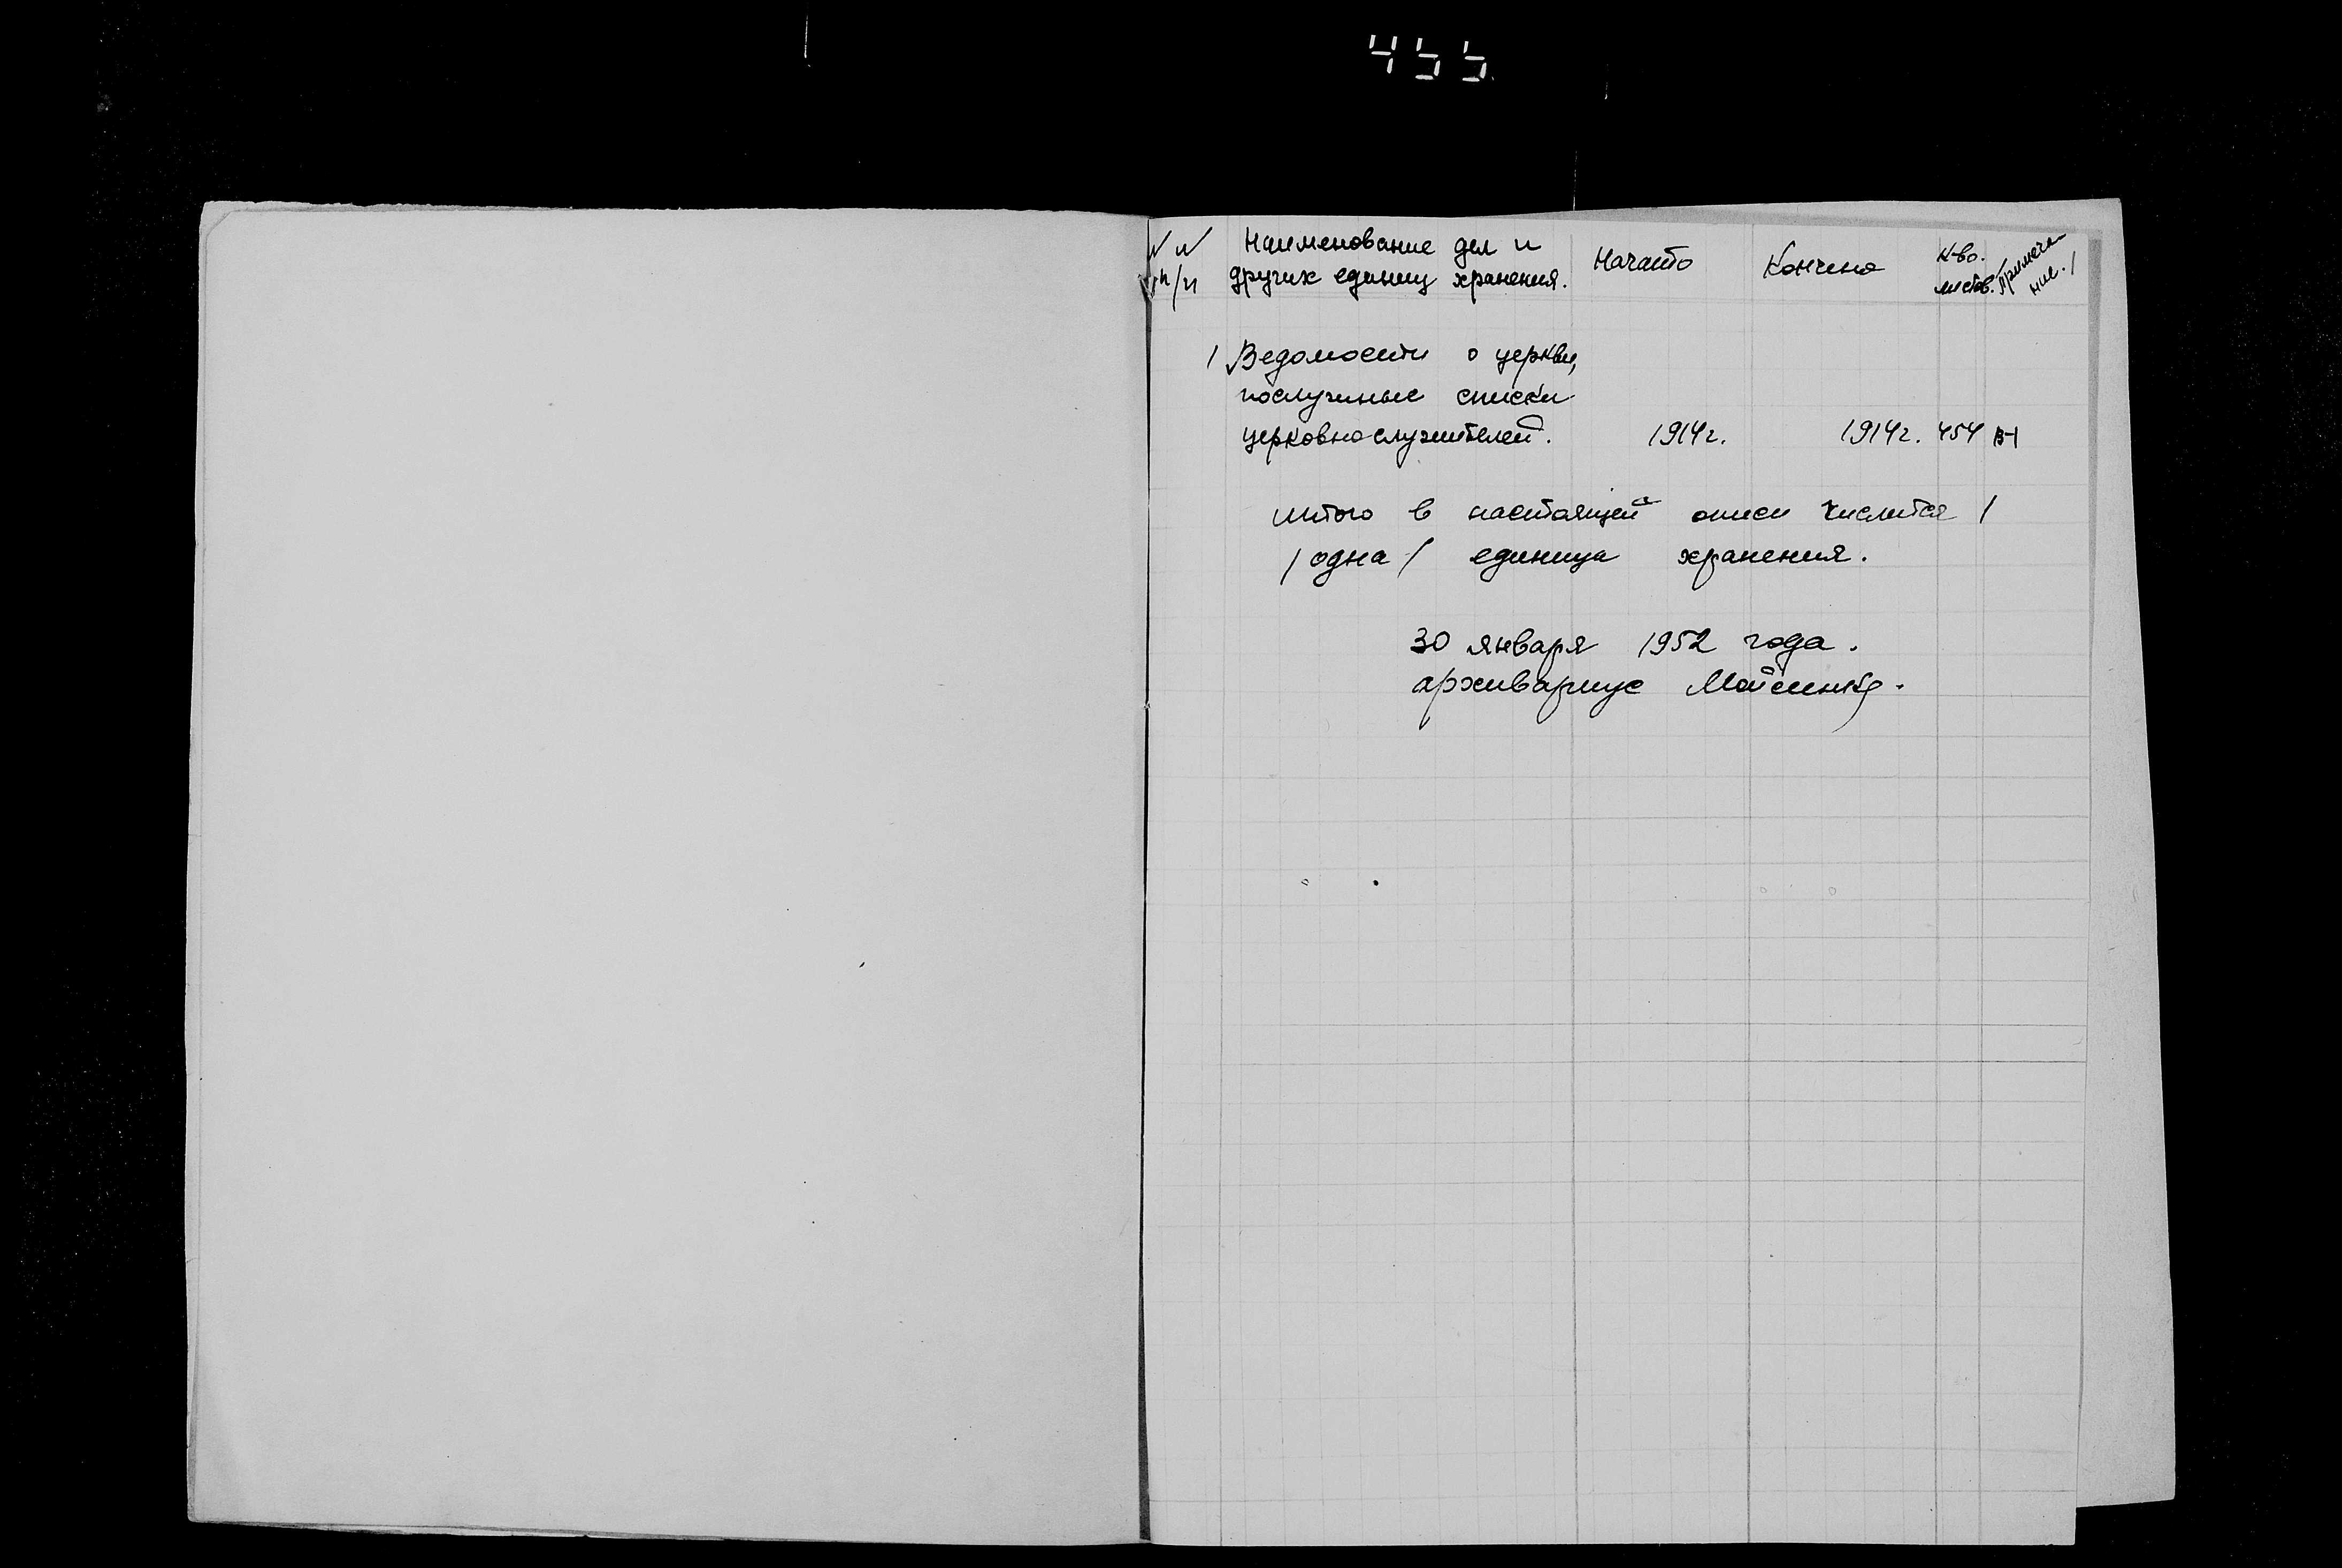 455
№ №
п/п
Наименование дел и
других единиц хранения.
Начато
Кончено
К-во.
листов.
Примеча-
ние.
1 Ведомости о церкви,
послужные списки
церковнослужителей. 1914г. 1914г. 454
итого в настоящей описи числится 1
/одна/ единица хранения.
30 января 1952 года.
архивариус